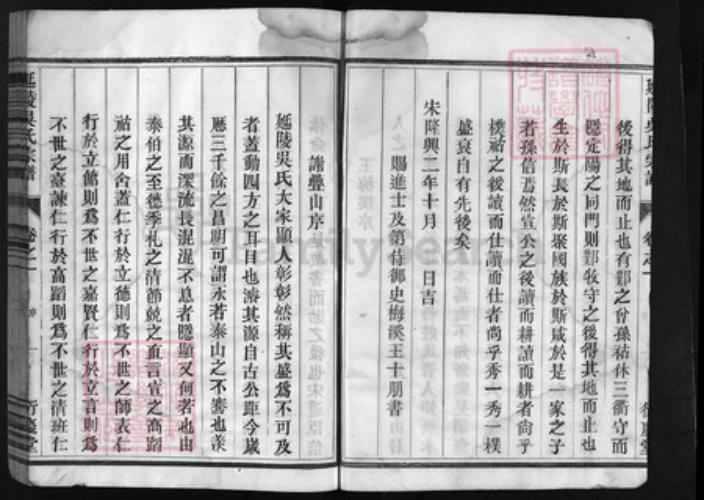 後得其地而止也有鄴之曾孫祐休三衢守而
隱定陽之同門則鄴牧守之後得其地而止也
生於斯長於斯聚國族於斯咸於是一家之子
若孫信焉然宣公之後讀而耕讀而耕者尚乎
樸祐之後讀而仕讀而仕者尚乎秀一秀一樸
盛衰自有先後矣
宋隆興二年十月 日吉
賜進士及第侍御史梅溪王十朋書
謝疊山序
延陵吳氏大家顯人彰彰然稱其盛為不可及
者蓋動四方之耳目也濬其源自古公距今歲
歷三千餘之昌期可謂永若泰山之不騫也羨
其源而深流長混混不息者隱顯又何若也由
泰伯之至德季札之清節兢之直言宣之高蹈
祐之用舍蓋仁行於立德則為不世之師表仁
行於立節則為不世之嘉賢仁行於立言則為
不世之臺諫仁行於高蹈則為不世之清班仁
延陵吳氏宗譜
卷之一
序
行慶堂
FamilySearch